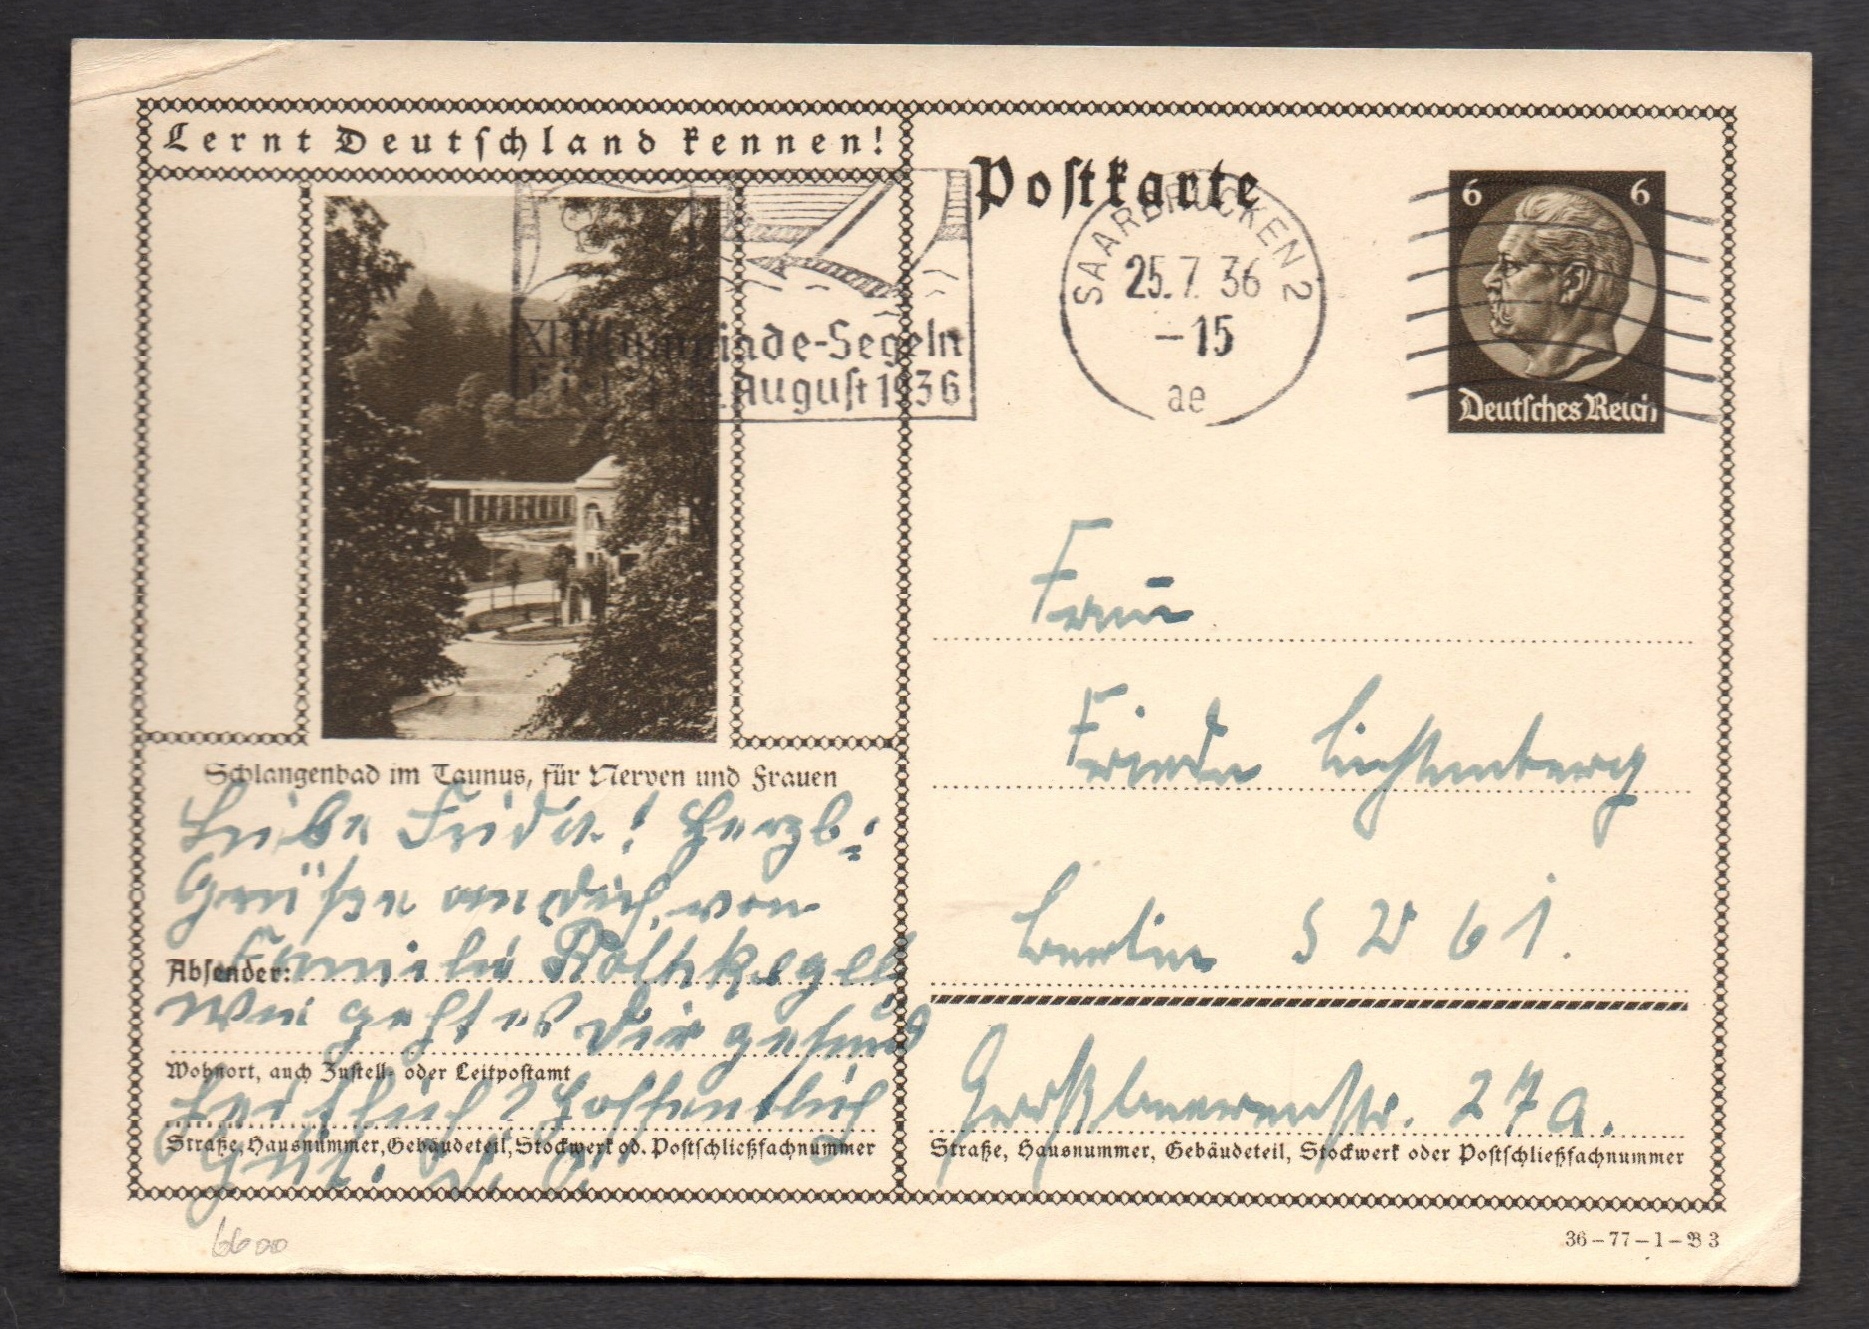 Lernt Deutschland kennen!
Postkarte
SAARBRÜCKEN 2
25.7.36
-15
ae
Olympiade-Segeln
August 1936
6 6
Deutsches Reich
Schlangenbad im Taunus, für Nerven und Frauen
Liebe Frida! Herzl:
Grüße an Dich, von
Familie
Absender:
Wie geht es Dir gesund
Wohnort, auch Zustell- oder Leitpostamt
heitlich? Hoffentlich
Straße, Hausnummer, Gebäudeteil, Stockwerk od. Postschließfachnummer
Gut.
Frau
Frieda Lichtenberg
Berlin S W 61.
Großbeerenstr. 27a.
Straße, Hausnummer, Gebäudeteil, Stockwerk oder Postschließfachnummer
36-77-1-B 3
6600